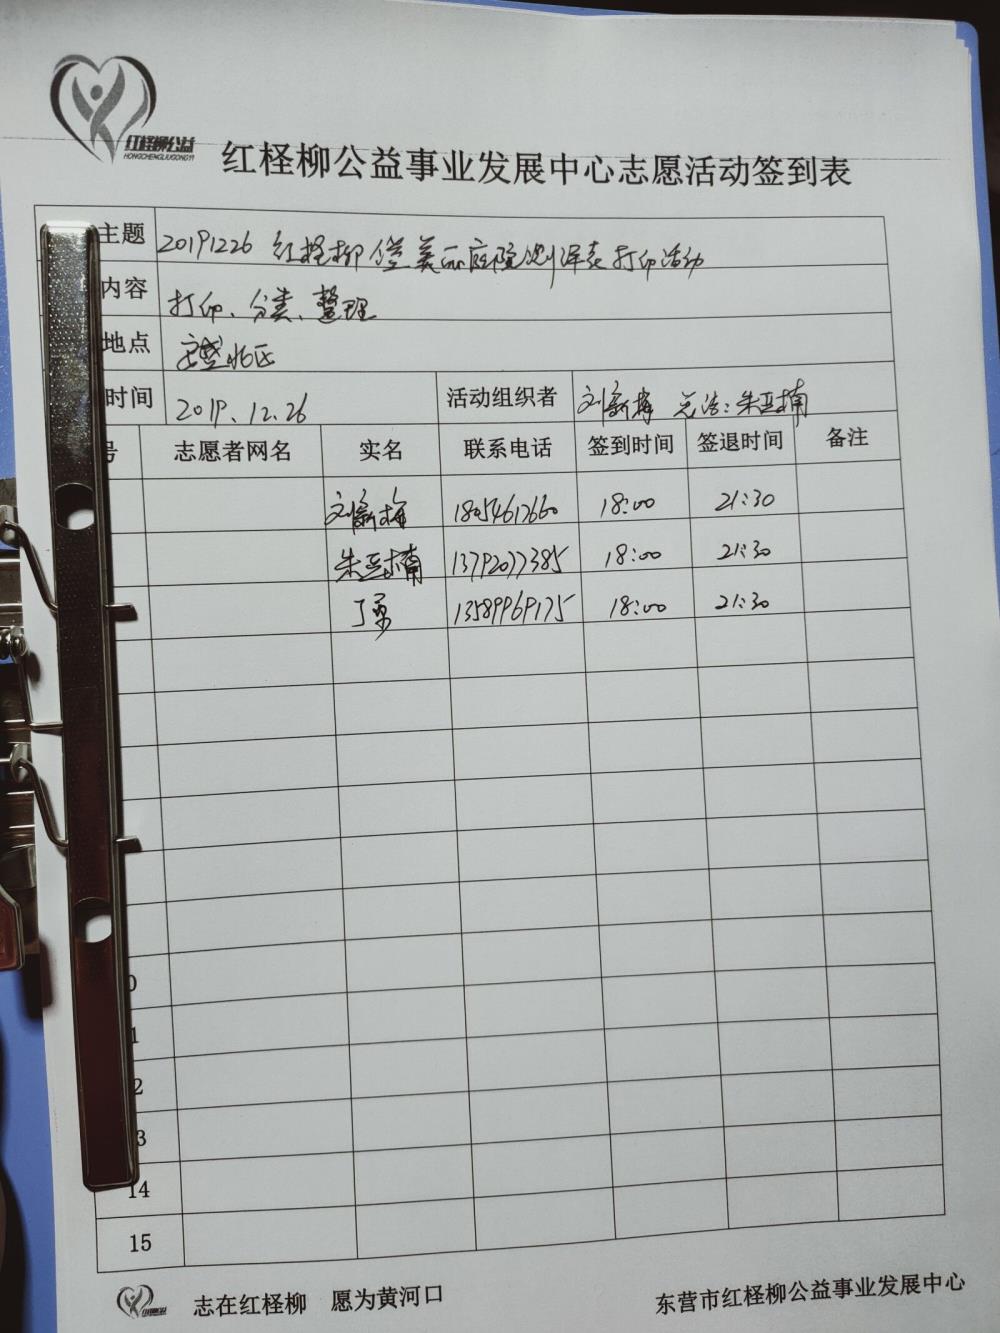 红柽柳公益
HONGCHENGLIUGONGYI
红柽柳公益事业发展中心志愿活动签到表
主题 20191226 红柽柳 美丽庭院测评表打印活动
内容 打印、分类、整理
地点
时间 2019.12.26 活动组织者 刘新梅 朱亚楠
号 志愿者网名 实名 联系电话 签到时间 签退时间 备注
刘新梅 18054612660 18:00 21:30
朱亚楠 13792077385 18:00 21:30
丁勇 13589969175 18:00 21:30
0
1
2
3
14
15
志在红柽柳 愿为黄河口
东营市红柽柳公益事业发展中心